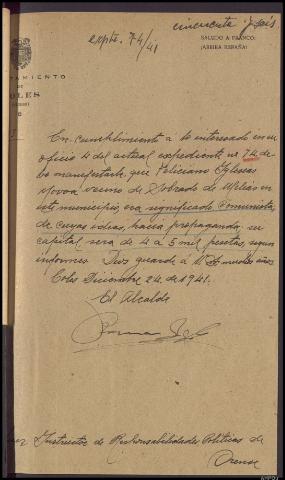 cincuenta y seis
expte. 74/41
SALUDO A FRANCO:
¡ARRIBA ESPAÑA!
TAMIENTO
DE
OLES
En cumplimiento a lo interesado en su
oficio 4 del actual expediente nº 74 de-
bo manifestarle que Feliciano Iglesias
Novoa vecino de Sobrado de
este municipio, era significado comunista,
de cuyas ideas, hacía propaganda, su
capital será de 4 a 5 mil pesetas, según
informes Dios guarde a V. muchos años
Coles Diciembre 24 de 1941.
El Alcalde
Instructor de Responsabilidades Políticas de
Orense